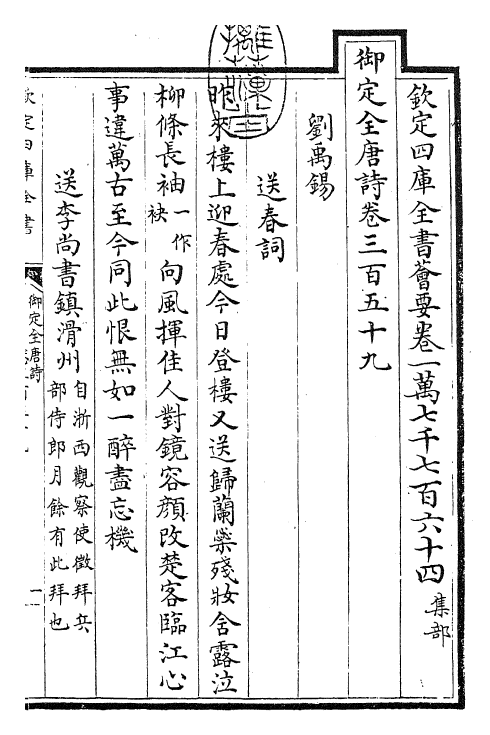 欽定四庫全書薈要卷一萬七千七百六十四 集部
御定全唐詩卷三百五十九
劉禹錫
送春詞
昨來樓上迎春處今日登樓又送歸蘭蘂殘妝含露泣
柳條長袖一作袂向風揮佳人對鏡容顔改楚客臨江心
事違萬古至今同此恨無如一醉盡忘機
送李尚書鎮滑州自浙西觀察使徵拜兵部侍郎月餘有此拜也
欽定四庫全書
御定全唐詩
一